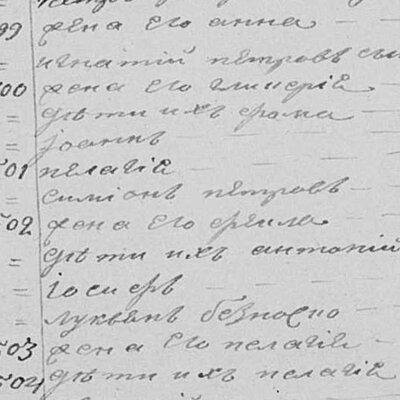 99 жена его анна
= игнатій петровъ сын
00 жена его гликерія
= дѣти ихъ фома
= іоаннъ
501 пелагія
= симіонъ петровъ
502 жена его
= дѣти ихъ антоній
= іосифъ
= лукьянъ безносно
503 жена его пелагія
504 дѣти ихъ пелагія